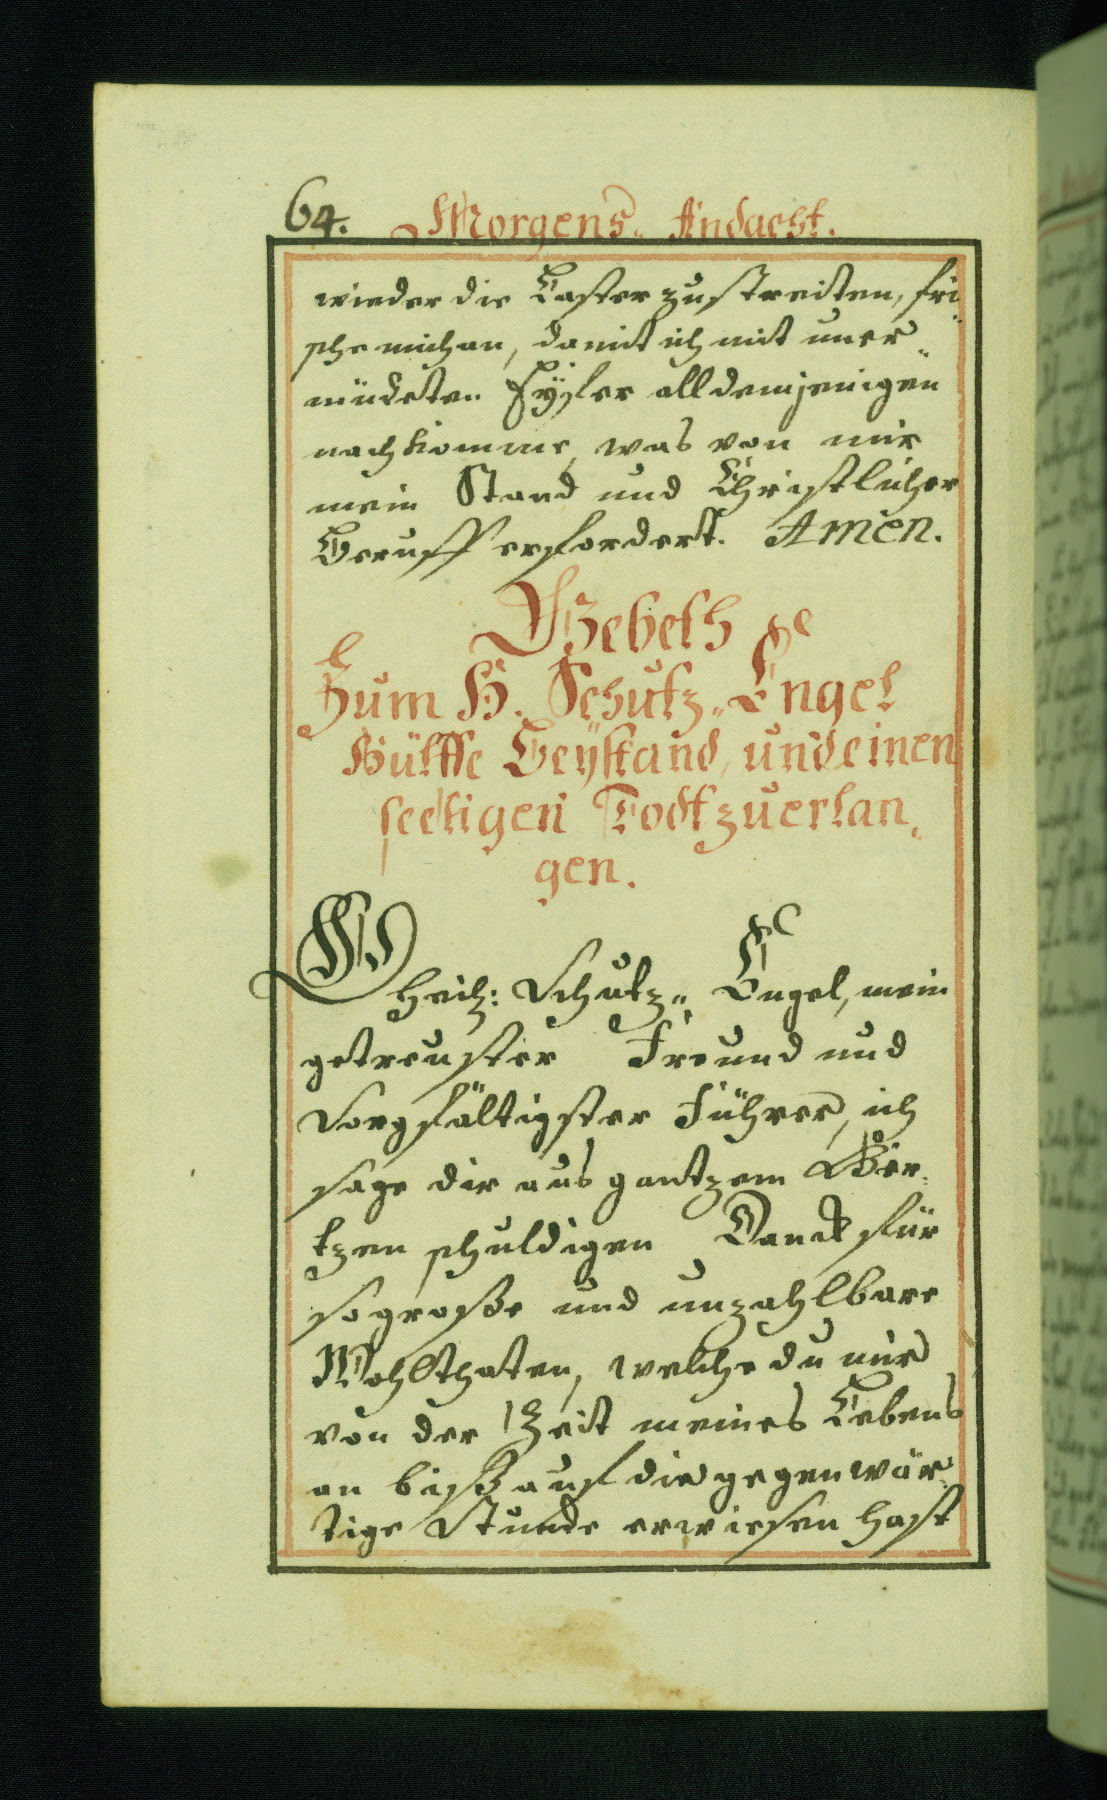 64. Morgens„ Andacht.
wieder die Laster zu streitten, fri„
sche mich an, damit ich mit uner„
müdeten Eÿfer all demjenigen
nachkomme, was von mir
mein Stand und Christlicher
Beruff erfordert. Amen.
Gebeth
Zum H. Schutz„ Engel
Hülffe Beÿstand, und einen
seeligen Todt zu erlan„
gen.
O
Heilg: Schutz„ Engel, mein
getreuster Freund und
Sorgfältigster Führer, ich
sage dir aus gantzem Her„
tzen schuldigen Danck für
so große und unzahlbare
Wohlthaten, welche du mir
von der Zeit meines Lebens
an biß auf die gegenwär„
tige Stunde erwiesen hast